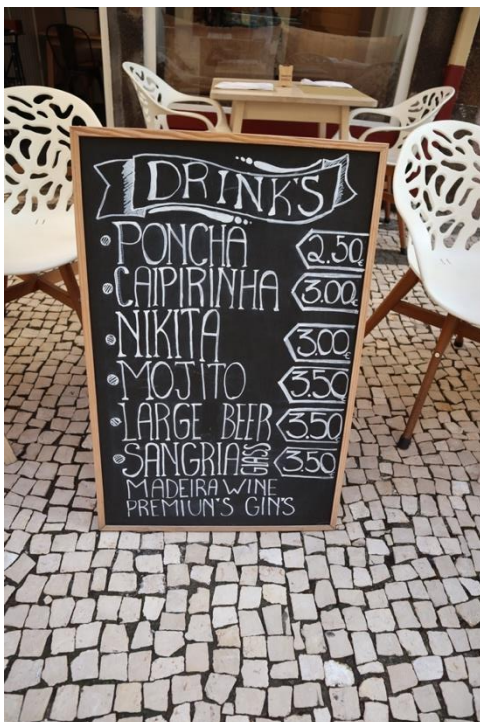 DRINK'S
PONCHA 2.50€
CAIPIRINHA 3.00€
NIKITA 3.00€
MOJITO 3.50
LARGE BEER 3.50
SANGRIA GLASS 3.50
MADEIRA WINE
PREMIUN'S GIN'S